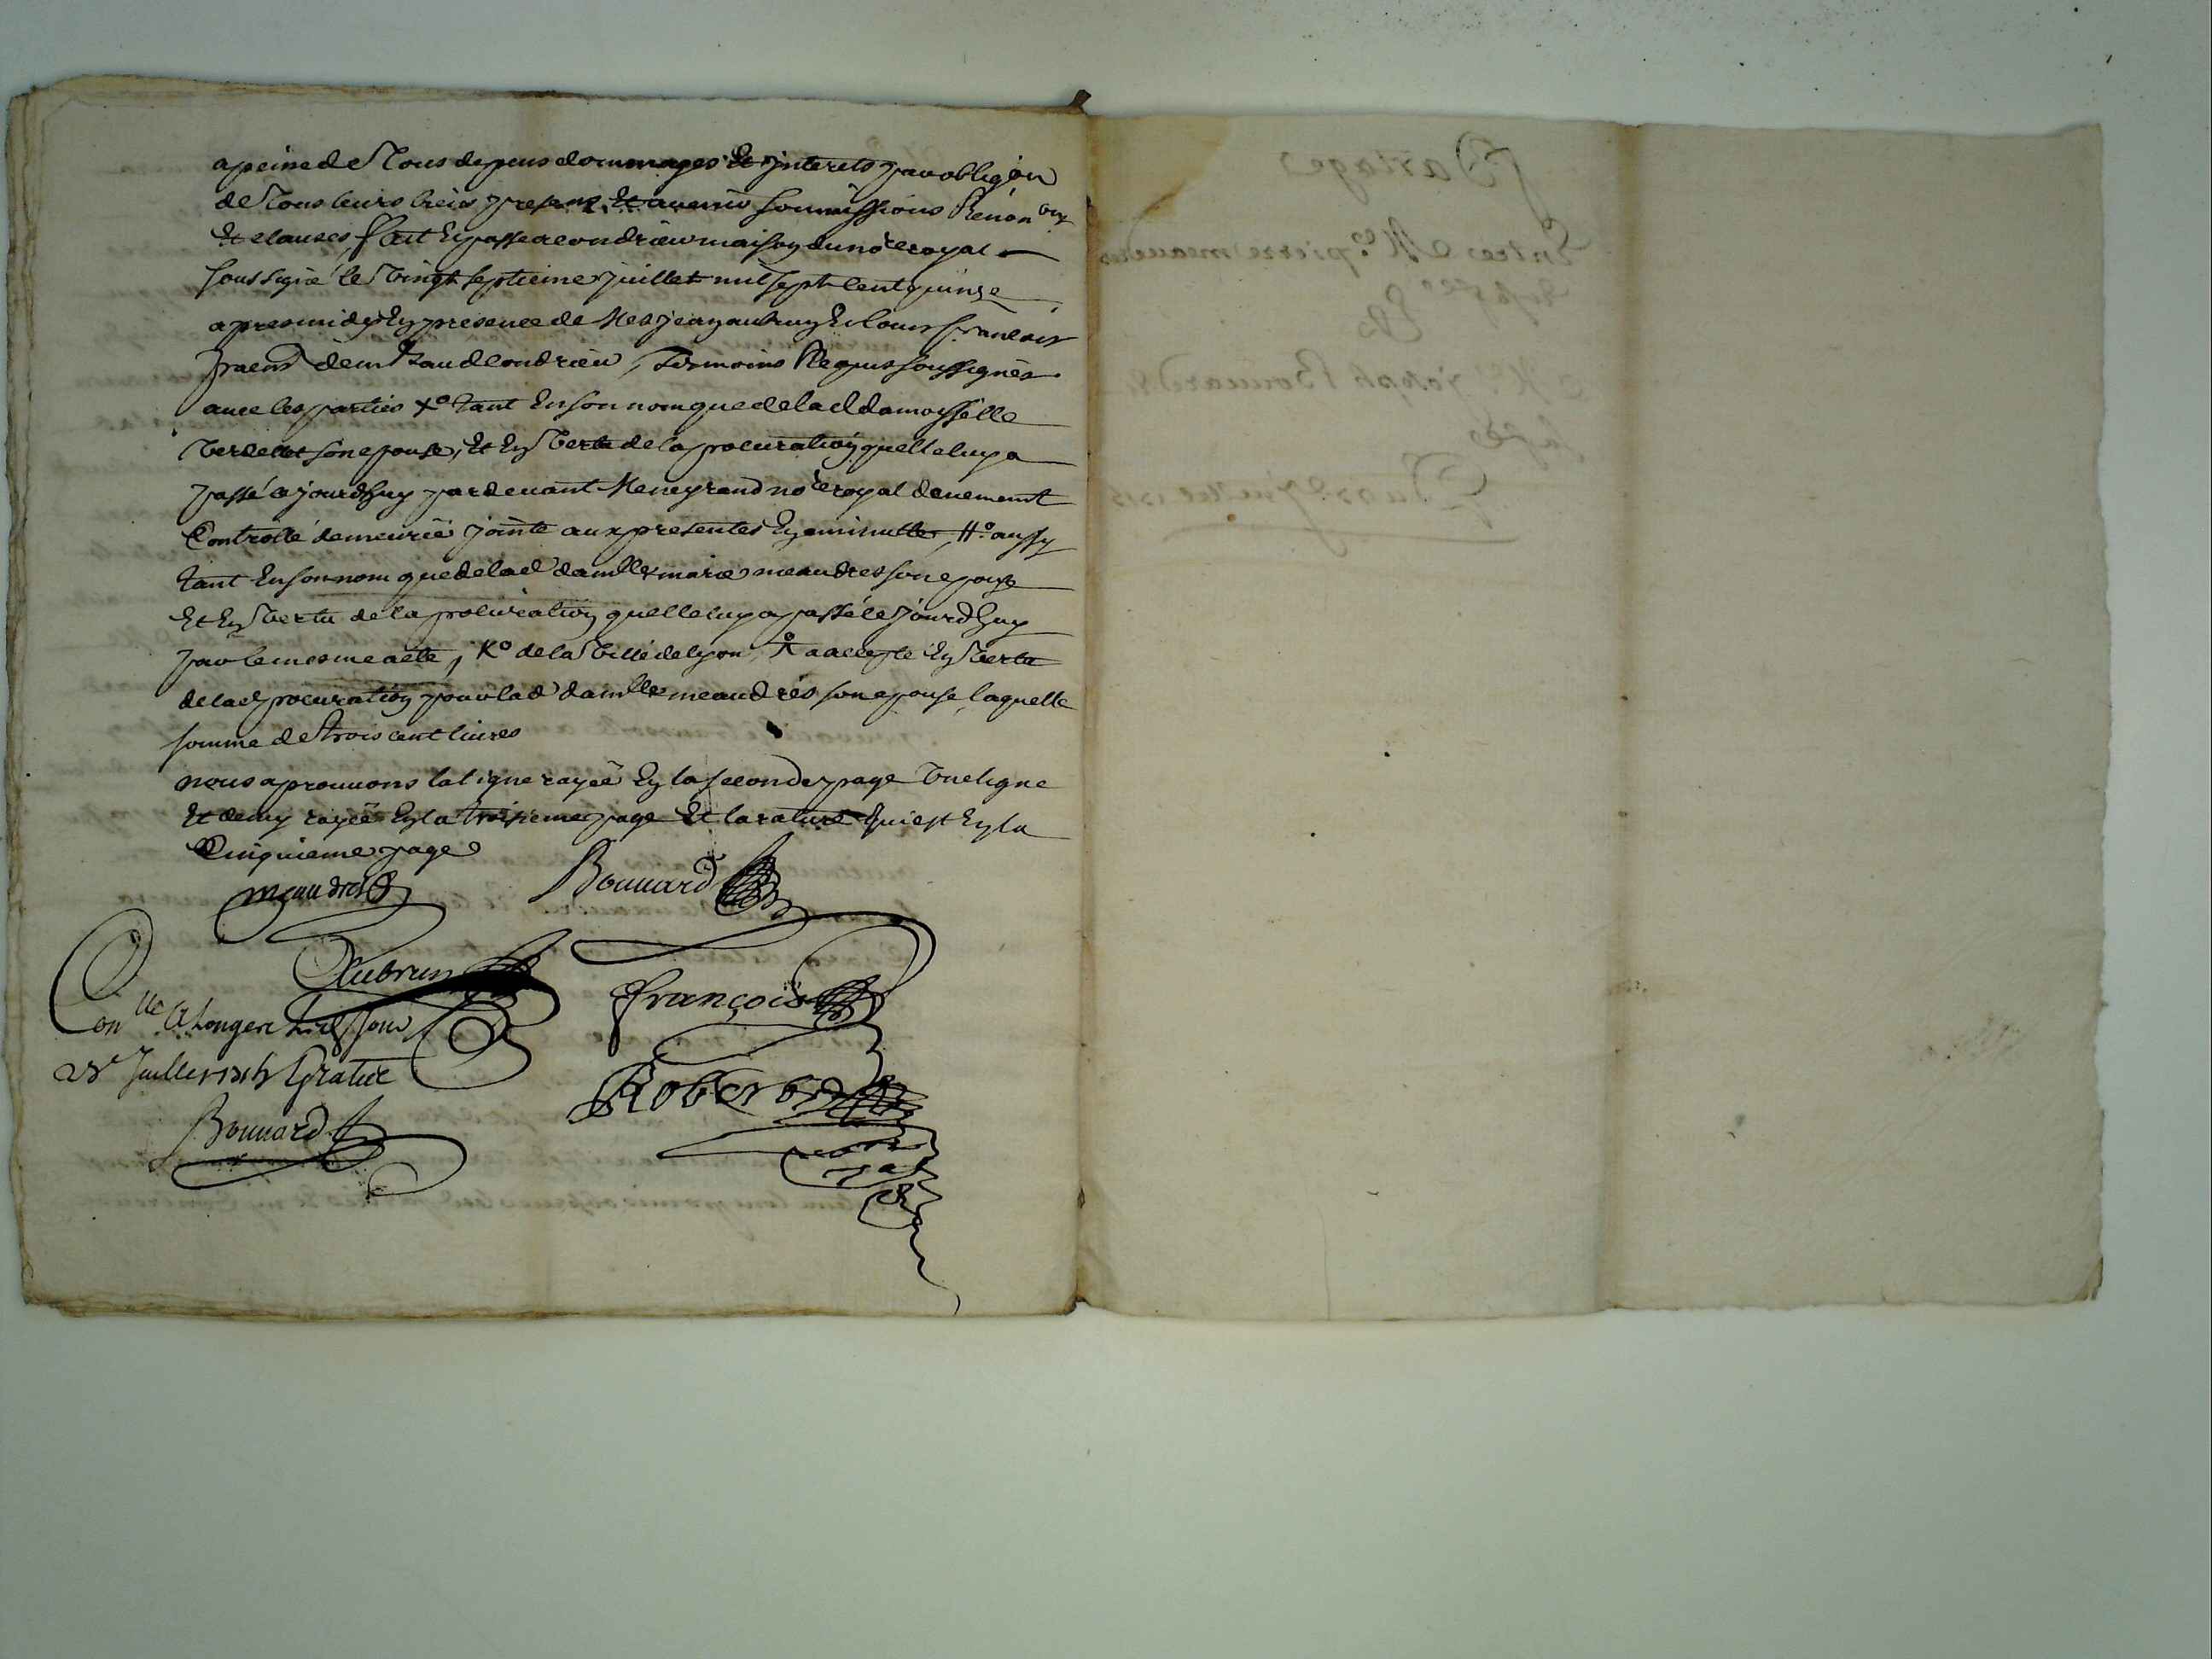 a peine de Tous depens dommages Et jnterets par obligõn
de Tous leurs biens presens Et avenir soumissions Renonons
Et clauses fait Et passe a condrieu maison du nore royal
soussigné le Vingt septieme juillet mil sept cent quinze
apres midy En presence de Mes jean aubrun Et louis francois
praens demt aud condrieu, Temoins Requis soussignés
avec les parties Xo tant En son nom que de lad damoyselle
Verdellet son epouse, Et En Vertu de la procuration quelle luy a
passé cejourdhuy pardevant Me neyrand nore royal deuement
Controllé demeurée jointe aux presentes En minutte, Ho aussy
tant En son nom que de lad damlle marie meaudres son epouse
Et En Vertu de la procuration quelle luy a passé cejourdhuy
par le mesme acte, Ko de la Ville de lyon, a accepte En Vertu
de lad procuration pour lad damlle meaudres son epouse, laquelle
somme de trois cent livres
nous aprouvons la ligne rayeé En la seconde page Vne ligne
Et demy rayeé En la troisieme page Et la rature qui est En la
Cinquieme page
meaudres Bouuard
Aubrun françois
Conlle A longere
28e Juillet 1715 Gratис
Roberon
Bouuard
Partages
Entre Me pierre meaudres
Et
Me joseph Bouuard &
Du 27 juillet 1715